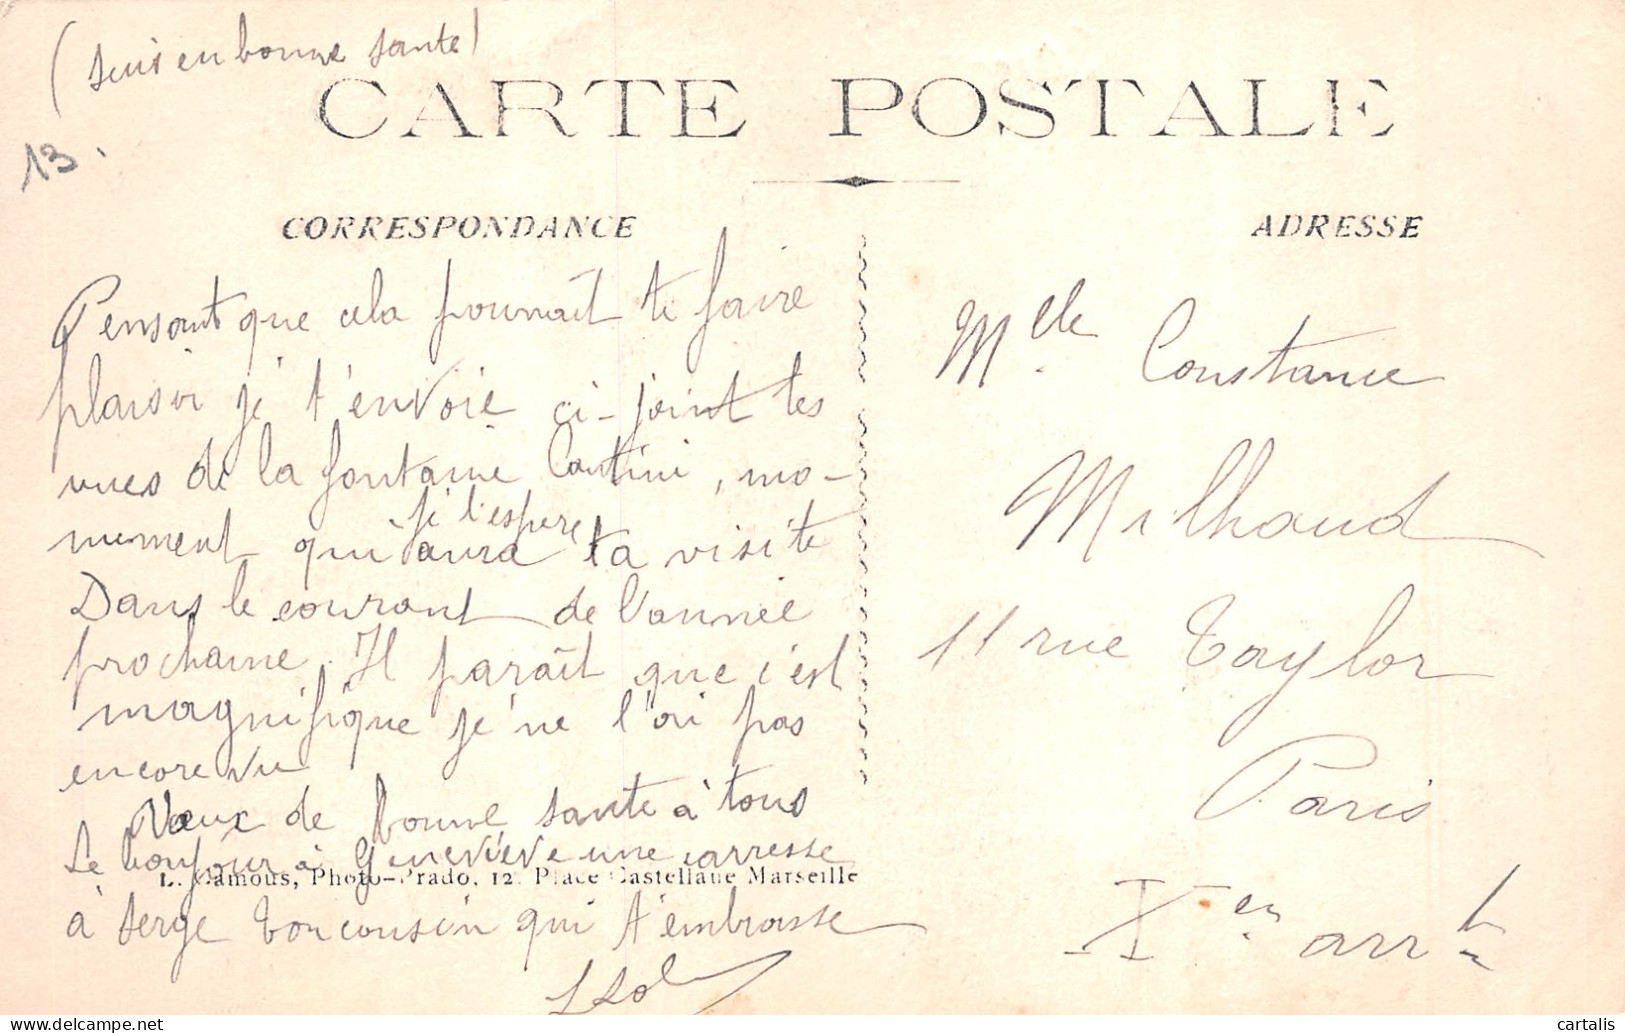 (suis en bonne santé)
CARTE POSTALE
13.
CORRESPONDANCE
ADRESSE
Pensant que cela pourrait te faire
plaisir je t'envoie ci-joint les
vues de la fontaine Cantini, mo-
je l'espere
nument qui aura ta visite
Dans le courant de l'année
prochaine. Il paraît que c'est
magnifique je ne l'ai pas
encore vu
Vœux de bonne sante à tous
Le bonjour à Genevieve une carresse
L. Camous, Photo-Prado, 12, Place Castellane Marseille
à Serge ton cousin qui t'embrasse
Mlle Constance
Milhaud
11 rue Taylor
Paris
Xen arrt
cartalis
www.delcampe.net